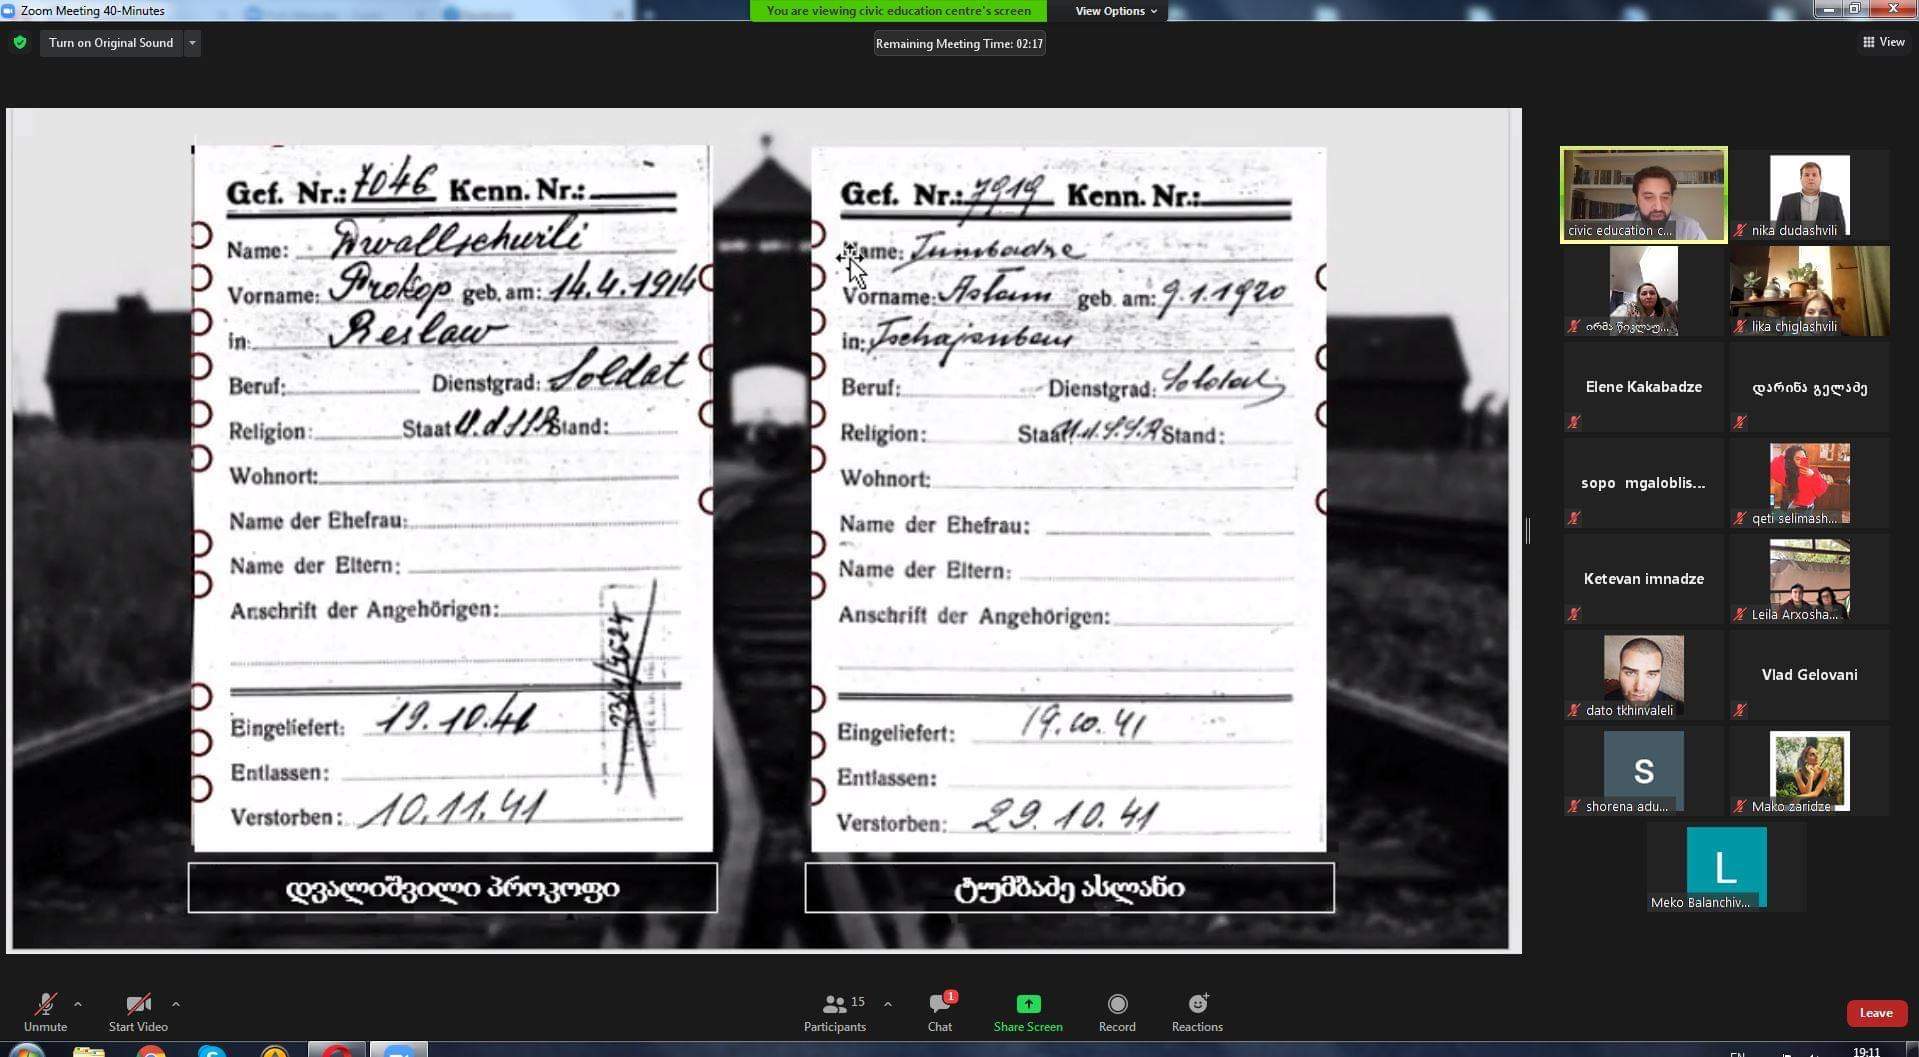 Zoom Meeting 40-Minutes
You are viewing civic education centre's screen
View Options
Turn on Original Sound
Remaining Meeting Time: 02:17
View
Gef. Nr.: 7046 Kenn. Nr.:
Name: Dwallschwili
Vorname: Prokop geb. am: 14.4.1914
in: Reslaw
Beruf: Dienstgrad: Soldat
Religion: Staat U.d.S.S.R Stand:
Wohnort:
Name der Ehefrau:
Name der Eltern:
Anschrift der Angehörigen:
Eingeliefert: 19.10.41
Entlassen:
Verstorben: 10.11.41
დვალიშვილი პროკოფი
Gef. Nr.: 7919 Kenn. Nr.:
Name: Tumbadze
Vorname: Aslan geb. am: 9.1.1920
in:
Beruf: Dienstgrad: Soldat
Religion: Staat U.d.S.S.R Stand:
Wohnort:
Name der Ehefrau:
Name der Eltern:
Anschrift der Angehörigen:
Eingeliefert: 19.10.41
Entlassen:
Verstorben: 29.10.41
ტუმბაძე ასლანი
civic education c...
nika dudashvili
ირმა წიკლაუ...
lika chiglashvili
Elene Kakabadze
დარინა გელაძე
sopo mgaloblis...
qeti selimash...
Ketevan imnadze
Leila Arxosha...
dato tkhinvaleli
Vlad Gelovani
S
shorena adu...
Mako zaridze
L
Meko Balanchiv...
Unmute
Start Video
15
Participants
1
Chat
Share Screen
Record
Reactions
Leave
EN
19:11